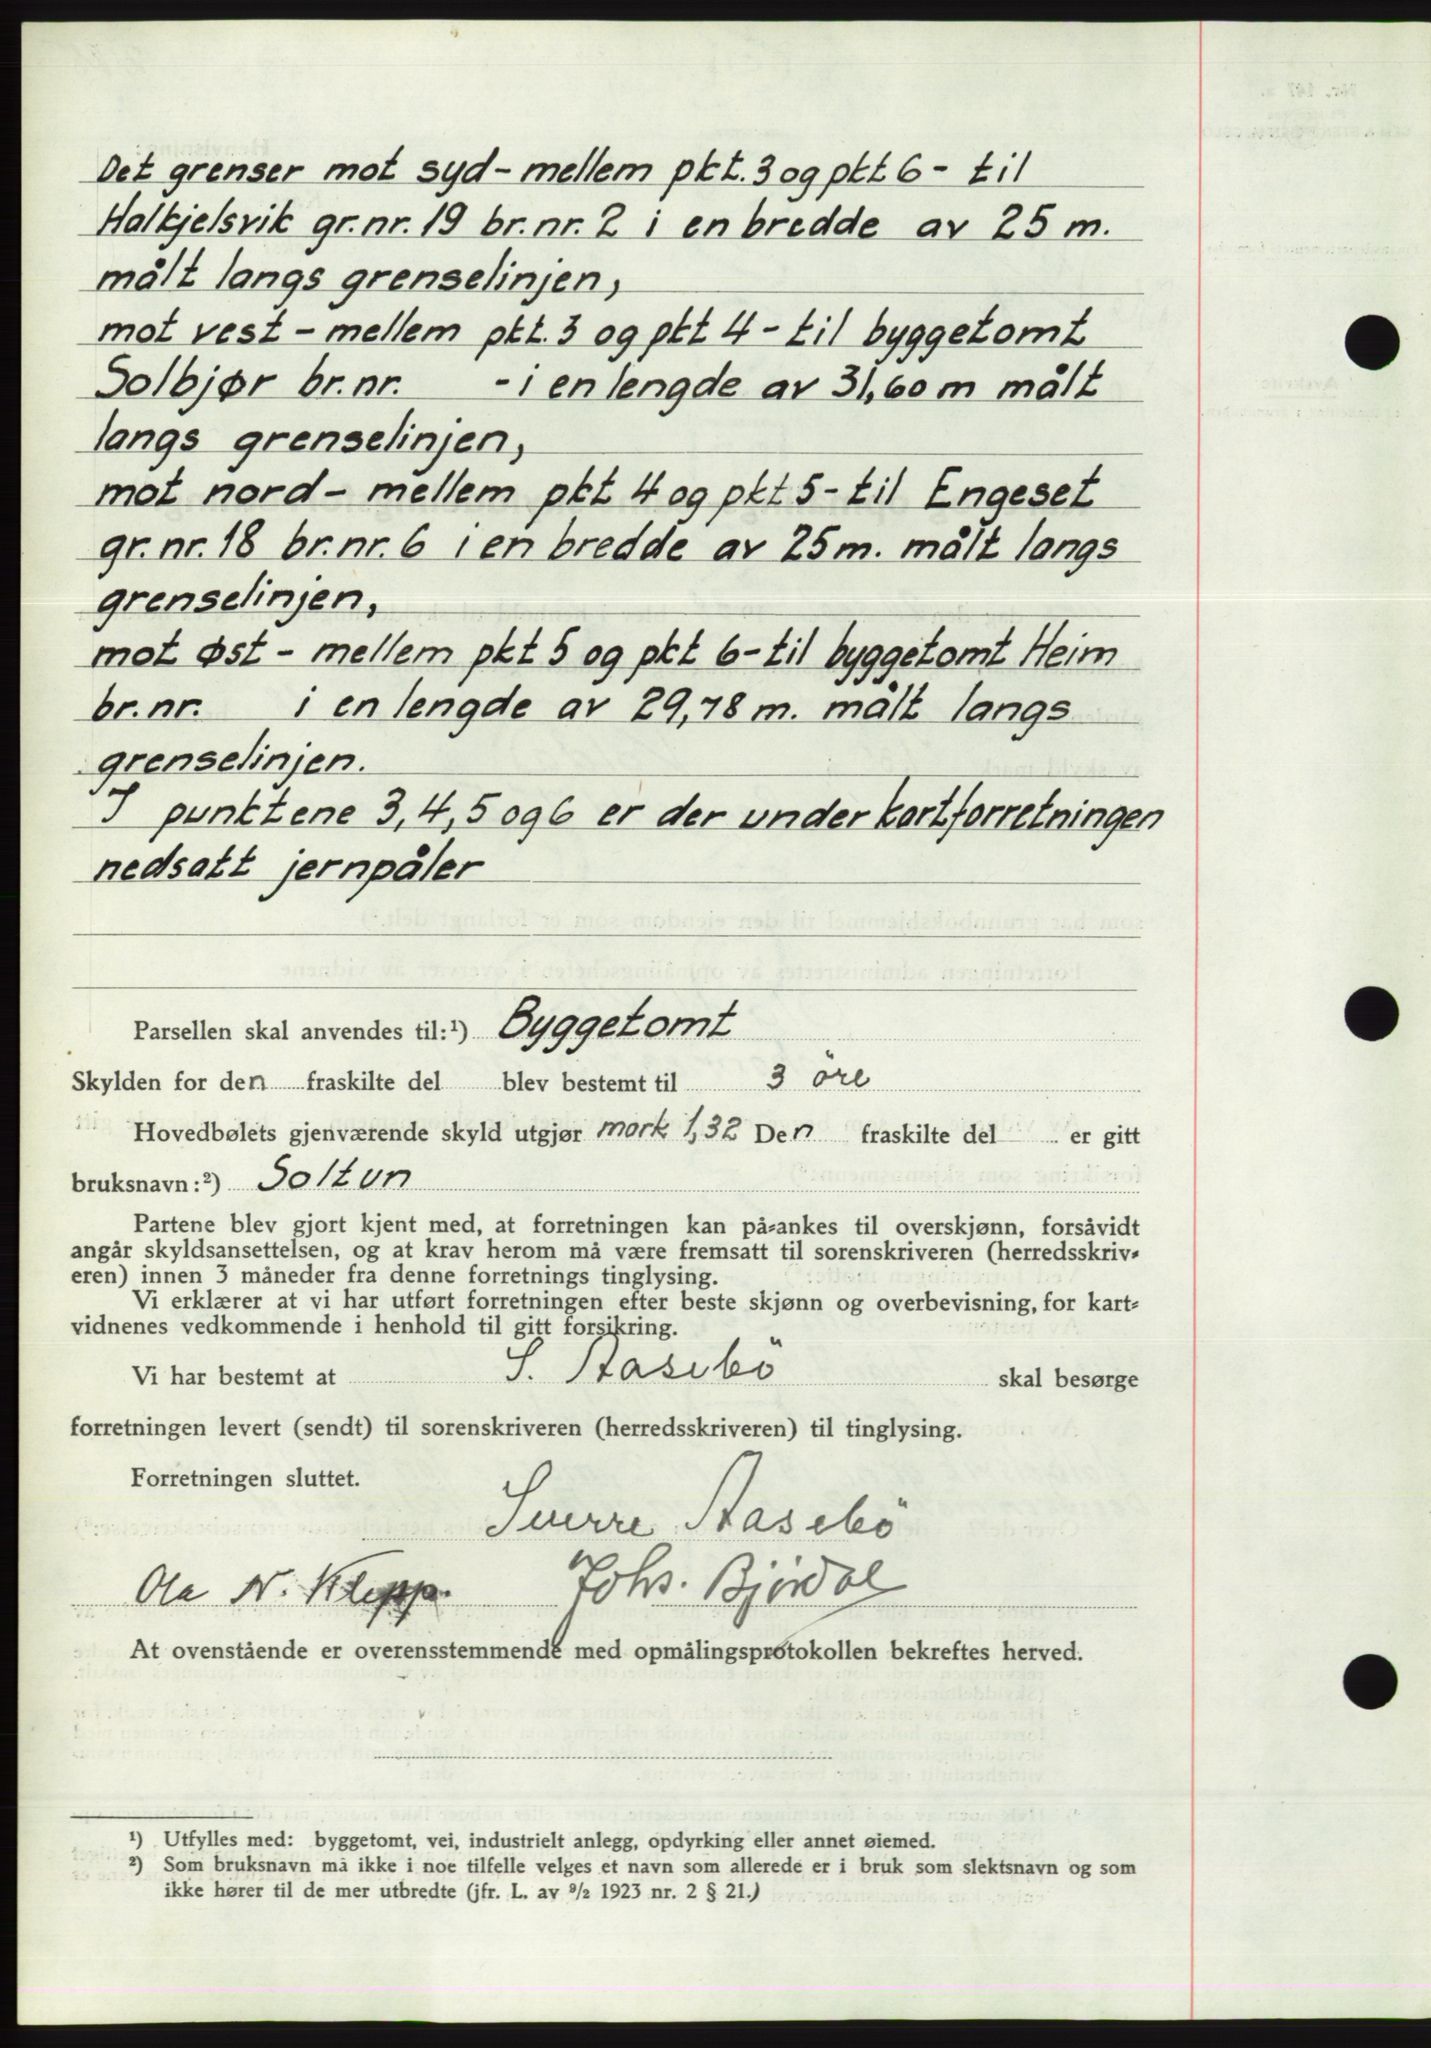 Det grenser mot syd - mellem pkt. 3 og pkt 6 - til
Halkjelsvik gr.nr. 19 br.nr. 2 i en bredde av 25 m.
målt langs grenselinjen,
mot vest - mellem pkt. 3 og pkt 4 - til byggetomt
Solbjør br.nr. - i en lengde av 31,60 m målt
langs grenselinjen,
mot nord - mellem pkt 4 og pkt 5 - til Engeset
gr.nr. 18 br.nr. 6 i en bredde av 25 m. målt langs
grenselinjen,
mot øst - mellem pkt 5 og pkt 6 - til byggetomt Heim
br.nr. i en lengde av 29,78 m. målt langs
grenselinjen.
I punktene 3, 4, 5 og 6 er der under kartforretningen
nedsatt jernpåler
Parsellen skal anvendes til:¹) Byggetomt
Skylden for den fraskilte del blev bestemt til 3 öre
Hovedbølets gjenværende skyld utgjør mark 1,32 Den fraskilte del er gitt
bruksnavn:²) Soltun
Partene blev gjort kjent med, at forretningen kan på-ankes til overskjønn, forsåvidt
angår skyldsansettelsen, og at krav herom må være fremsatt til sorenskriveren (herredsskriv-
eren) innen 3 måneder fra denne forretnings tinglysing.
Vi erklærer at vi har utført forretningen efter beste skjønn og overbevisning, for kart-
vidnenes vedkommende i henhold til gitt forsikring.
Vi har bestemt at S. Aasebö skal besørge
forretningen levert (sendt) til sorenskriveren (herredsskriveren) til tinglysing.
Forretningen sluttet.
Sverre Aasebö
Ola N. Klepp. Johs. Bjørdal
At ovenstående er overensstemmende med opmålingsprotokollen bekreftes herved.
¹) Utfylles med: byggetomt, vei, industrielt anlegg, opdyrking eller annet øiemed.
²) Som bruksnavn må ikke i noe tilfelle velges et navn som allerede er i bruk som slektsnavn og som
ikke hører til de mer utbredte (jfr. L. av ⁹/₂ 1923 nr. 2 § 21.)